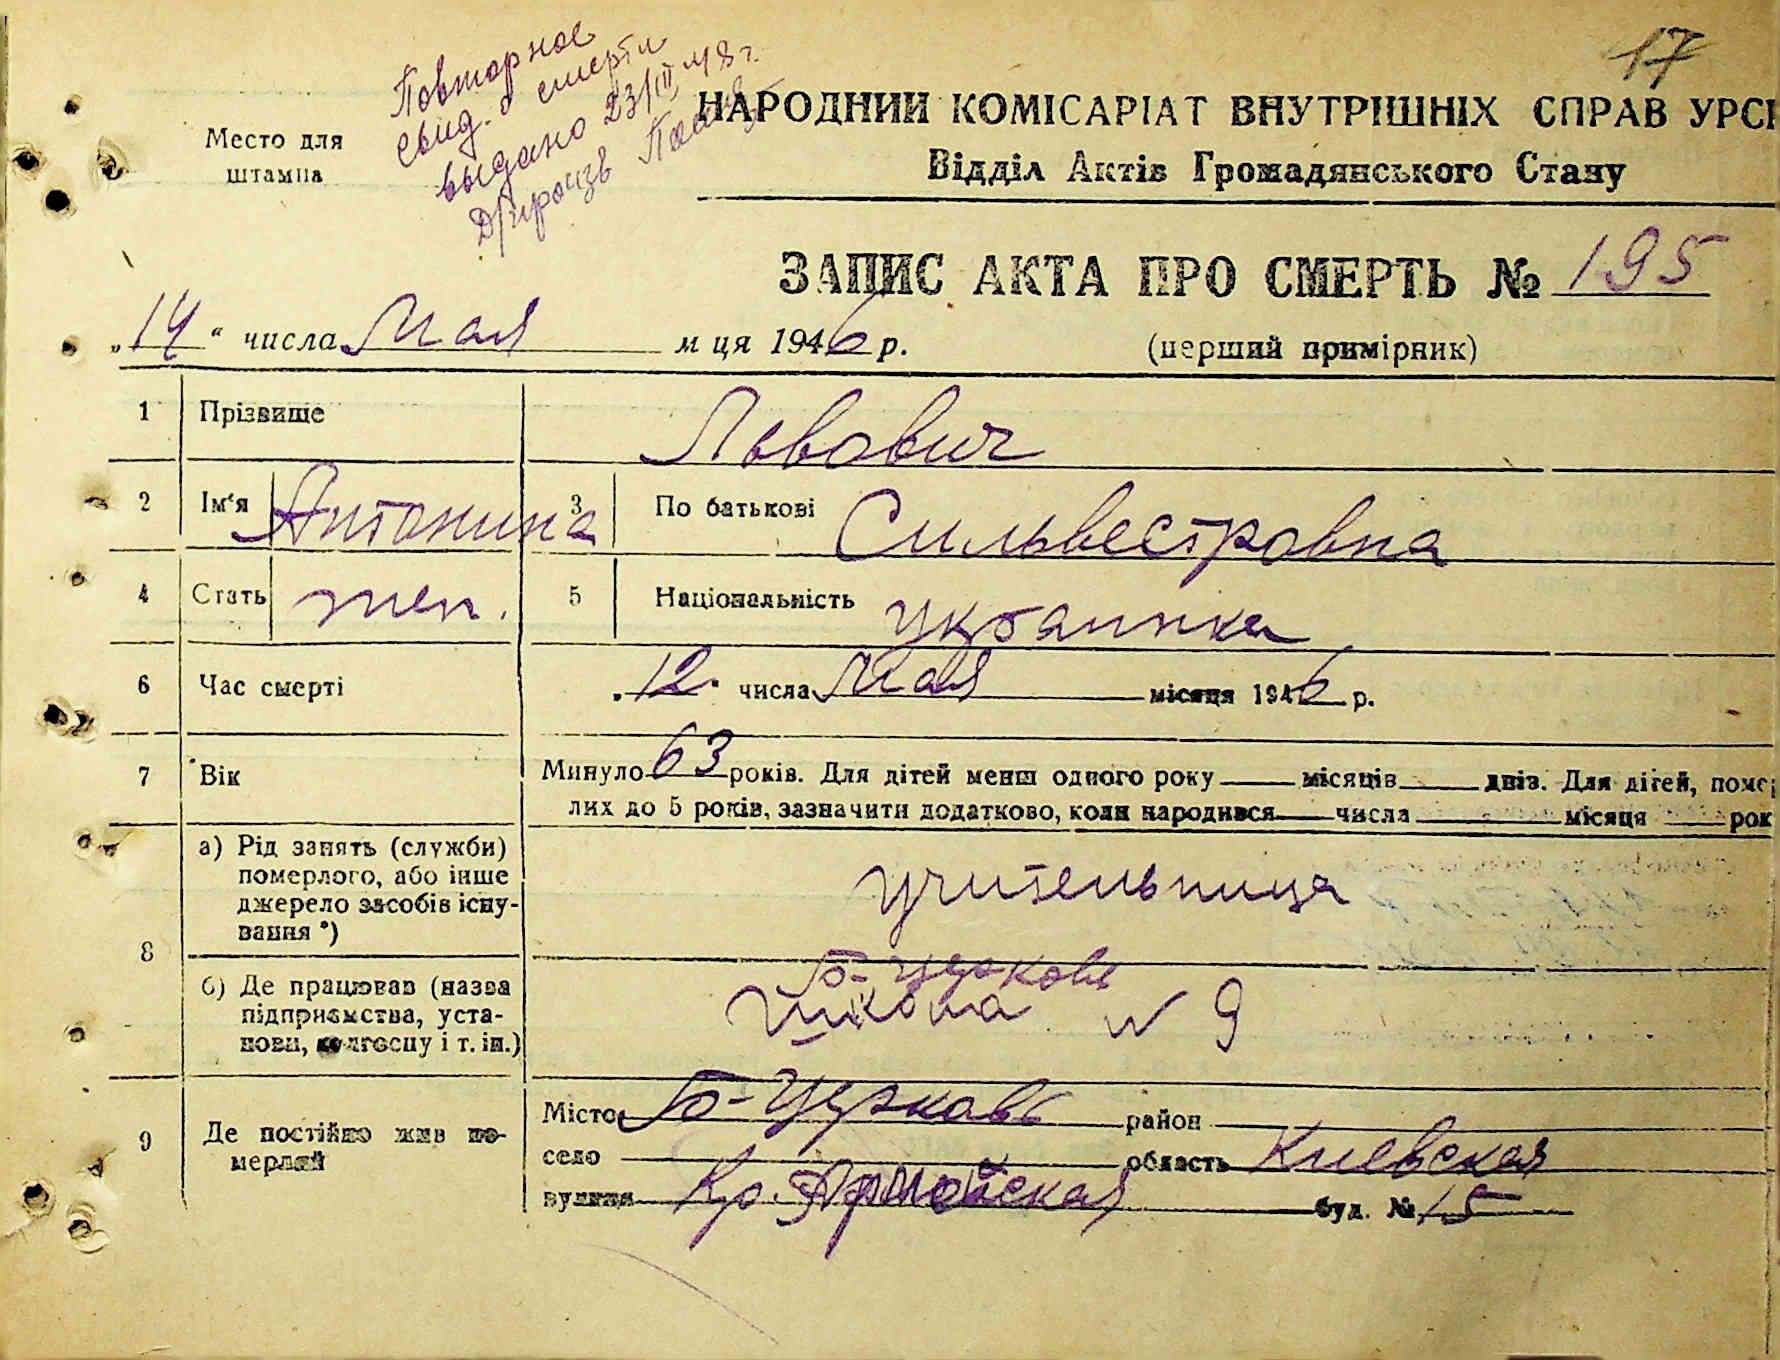 17
Повторное
свид. о смерти
выдано 23/III 48 г.
НАРОДНИЙ КОМІСАРІАТ ВНУТРІШНІХ СПРАВ УРСР
Відділ Актів Громадянського Стану
Место для
штампа
ЗАПИС АКТА ПРО СМЕРТЬ № 195
„14“ числа Мая м ця 1946 р. (перший примірник)
1 Прізвище Львович
2 Ім'я Антонина 3 По батькові Сильвестровна
4 Стать жен. 5 Національність украинка
6 Час смерті „12“ числа Мая місяця 1946 р.
7 Вік Минуло 63 років. Для дітей менш одного року місяців днів. Для дітей, помер
лих до 5 років, зазначити додатково, коли народився числа місяця рок
8 а) Рід занять (служби)
померлого, або інше
джерело засобів існу-
вання *) учительница
б) Де працював (назва
підприємства, уста-
нови, колгоспу і т. ін.) Б-Церковь
Школа N 9
9 Де постійно жив по-
мерлий
Місто Б-Церковь район
село область Киевская
вулиця Кр. Армейская буд. № 15